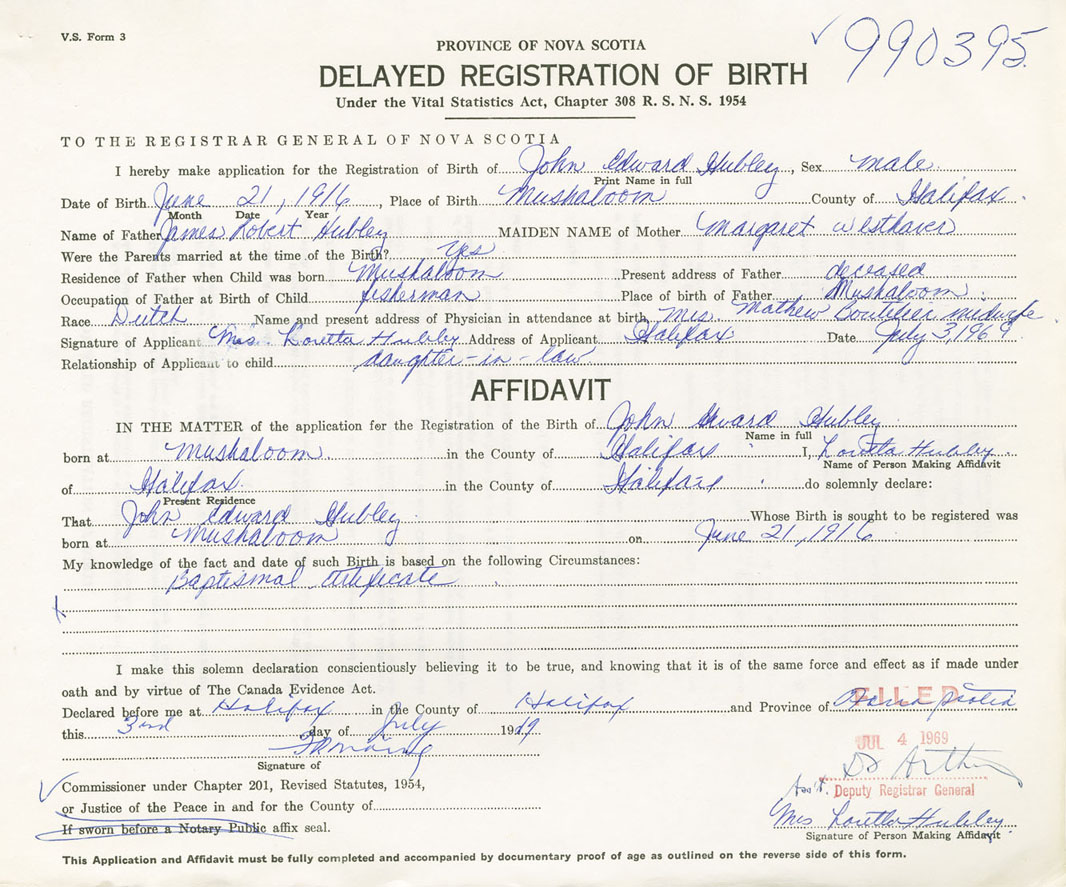 V.S. Form 3
990395
PROVINCE OF NOVA SCOTIA
DELAYED REGISTRATION OF BIRTH
Under the Vital Statistics Act, Chapter 308 R. S. N. S. 1954
TO THE REGISTRAR GENERAL OF NOVA SCOTIA
I hereby make application for the Registration of Birth of John Edward Hubley, Sex male
Print Name in full
Date of Birth June 21, 1916, Place of Birth Mushaloom County of Halifax.
Month Date Year
Name of Father James Robert Hubley MAIDEN NAME of Mother Margaret Westhaver
Were the Parents married at the time of the Birth? Yes
Residence of Father when Child was born Mushaloom Present address of Father deceased
Occupation of Father at Birth of Child fisherman Place of birth of Father Mushaloom
Race Dutch Name and present address of Physician in attendance at birth Mrs. Mathew Boutilier midwife
Signature of Applicant Mrs. Loretta Hubley Address of Applicant Halifax Date July 3, 1969
Relationship of Applicant to child daughter-in-law
AFFIDAVIT
IN THE MATTER of the application for the Registration of the Birth of John Edward Hubley
Name in full
born at Mushaloom. in the County of Halifax I, Loretta Hubley
Name of Person Making Affidavit
of Halifax. in the County of Halifax do solemnly declare:
Present Residence
That John Edward Hubley Whose Birth is sought to be registered was
born at Mushaloom on June 21, 1916
My knowledge of the fact and date of such Birth is based on the following Circumstances:
Baptismal Certificate
I make this solemn declaration conscientiously believing it to be true, and knowing that it is of the same force and effect as if made under
oath and by virtue of The Canada Evidence Act.
Declared before me at Halifax in the County of Halifax and Province of Nova Scotia
FILED
this 3rd day of July 1969
JUL 4 1969
Signature of
Commissioner under Chapter 201, Revised Statutes, 1954,
Ass't. Deputy Registrar General
or Justice of the Peace in and for the County of
Mrs Loretta Hubley
If sworn before a Notary Public affix seal.
Signature of Person Making Affidavit
This Application and Affidavit must be fully completed and accompanied by documentary proof of age as outlined on the reverse side of this form.